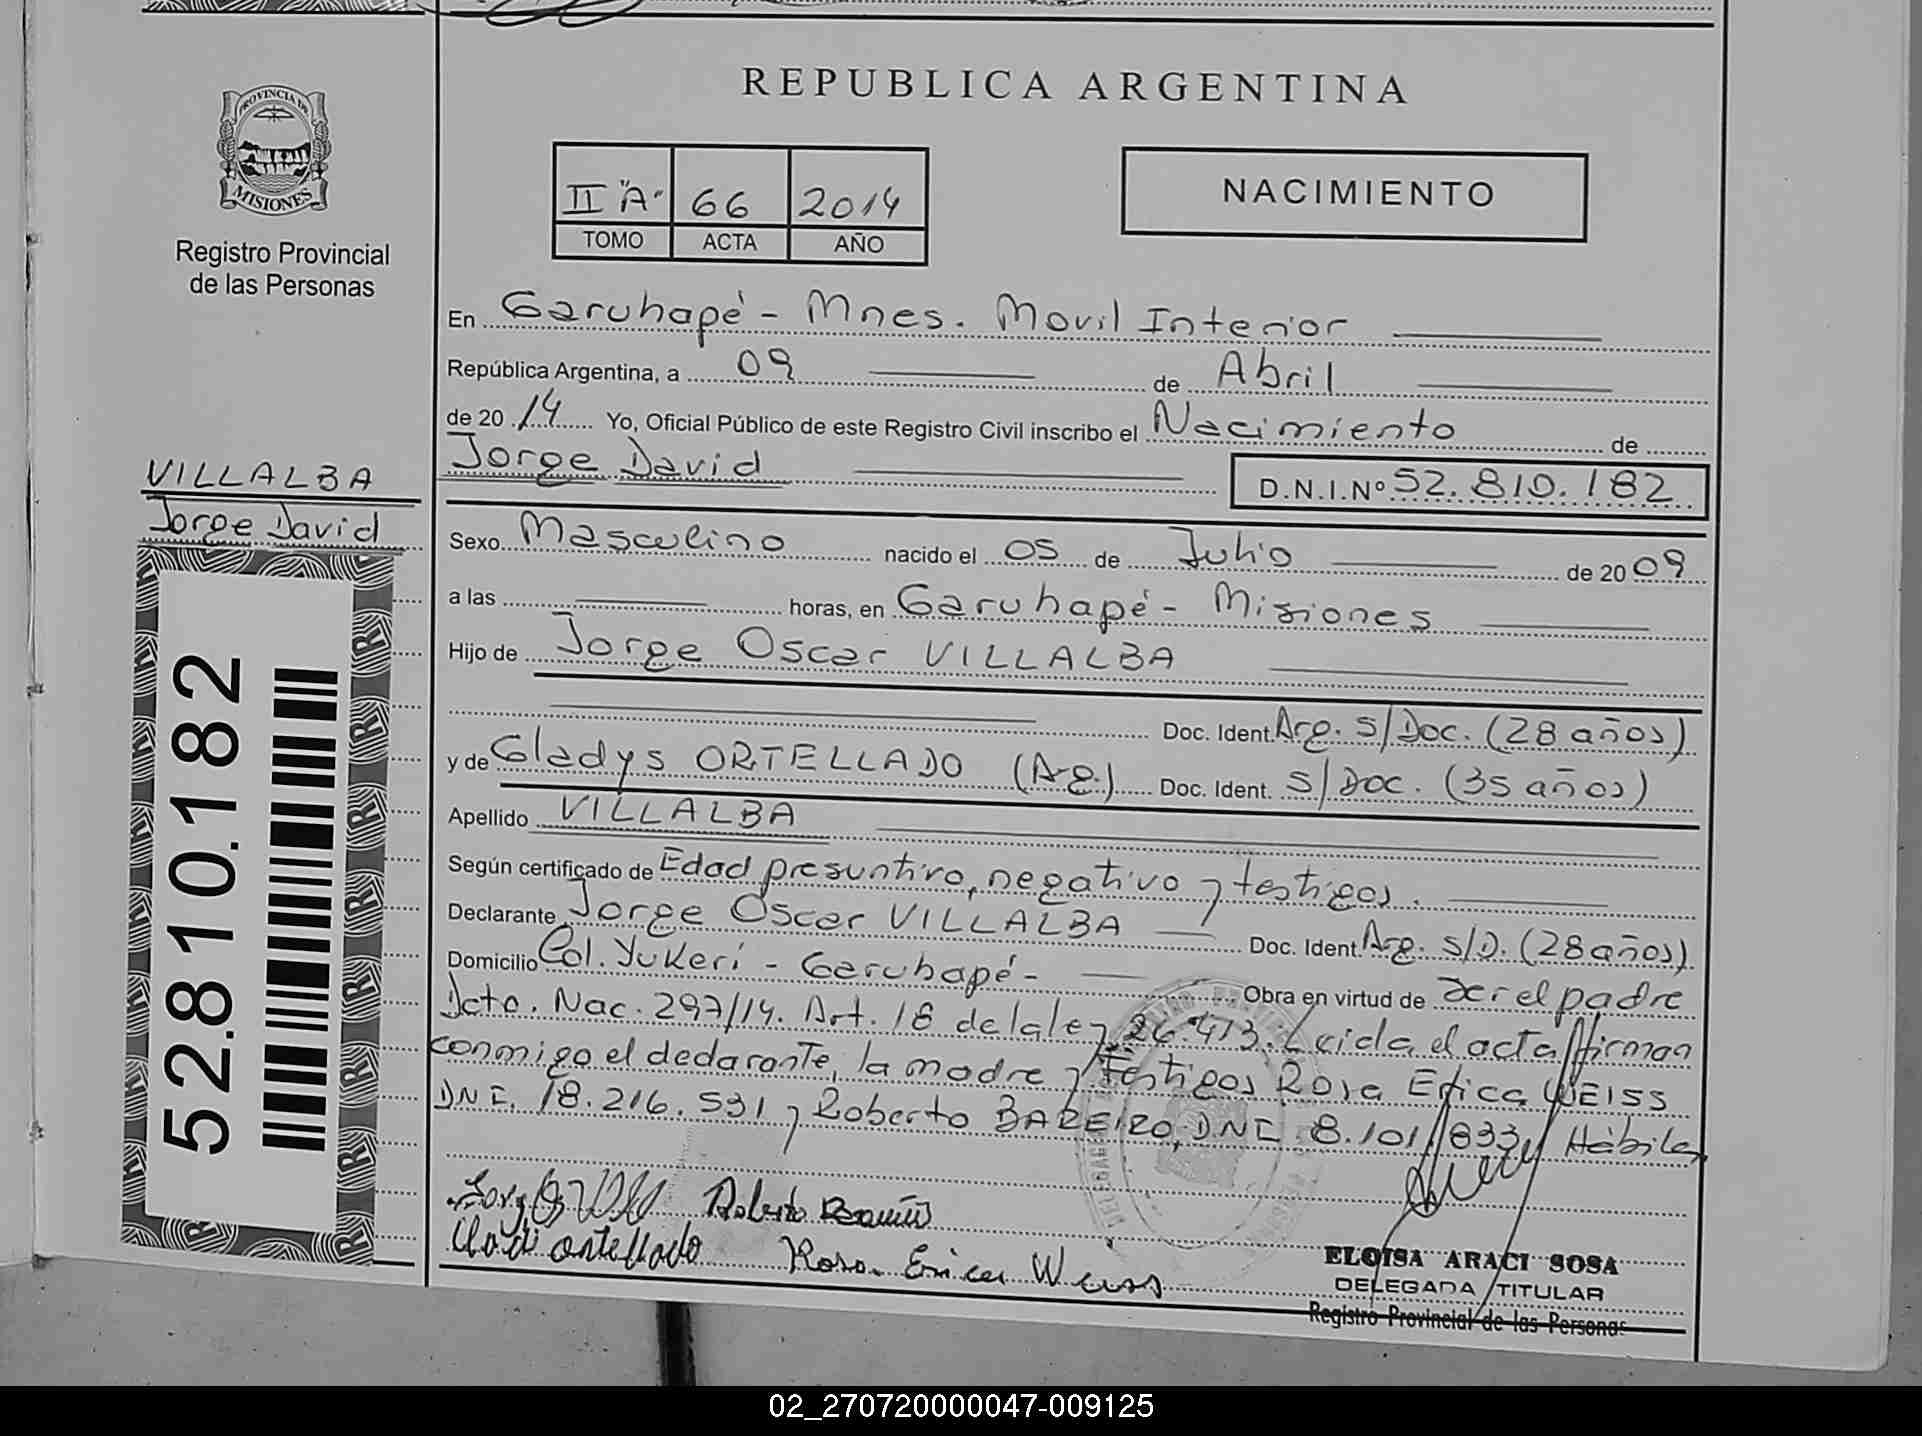 REPUBLICA ARGENTINA
PROVINCIA DE
MISIONES
Registro Provincial
de las Personas
II "A" 66 2014
TOMO ACTA AÑO
NACIMIENTO
En Garuhapé - Mnes. Movil Interior
República Argentina, a 09 de Abril
de 2014 Yo, Oficial Público de este Registro Civil inscribo el Nacimiento de
Jorge David D.N.I.Nº 52.810.182
VILLALBA
Jorge David
52.810.182
Sexo Masculino nacido el 05 de Julio de 2009
a las horas, en Garuhapé - Misiones
Hijo de Jorge Oscar VILLALBA
Doc. Ident. Arg. s/Doc. (28 años)
y de Gladys ORTELLADO (Arg.) Doc. Ident. s/Doc. (35 años)
Apellido VILLALBA
Según certificado de Edad presuntiva, negativo y testigos.
Declarante Jorge Oscar VILLALBA Doc. Ident. Arg. s/D. (28 años)
Domicilio Col. Yukerí - Garuhapé - Obra en virtud de ser el padre
Dcto. Nac. 297/14. Art. 18 de la ley 26.413. Leida el acta firman
conmigo el declarante, la madre y testigos Rosa Erica WEISS
DNI. 18.216.531 y Roberto BAREIRO, DNI 8.101.833 y Hábiles
Roberto
ortellado Rosa Erica Weiss
ELOISA ARACI SOSA
DELEGADA TITULAR
Registro Provincial de las Personas
02_270720000047-009125